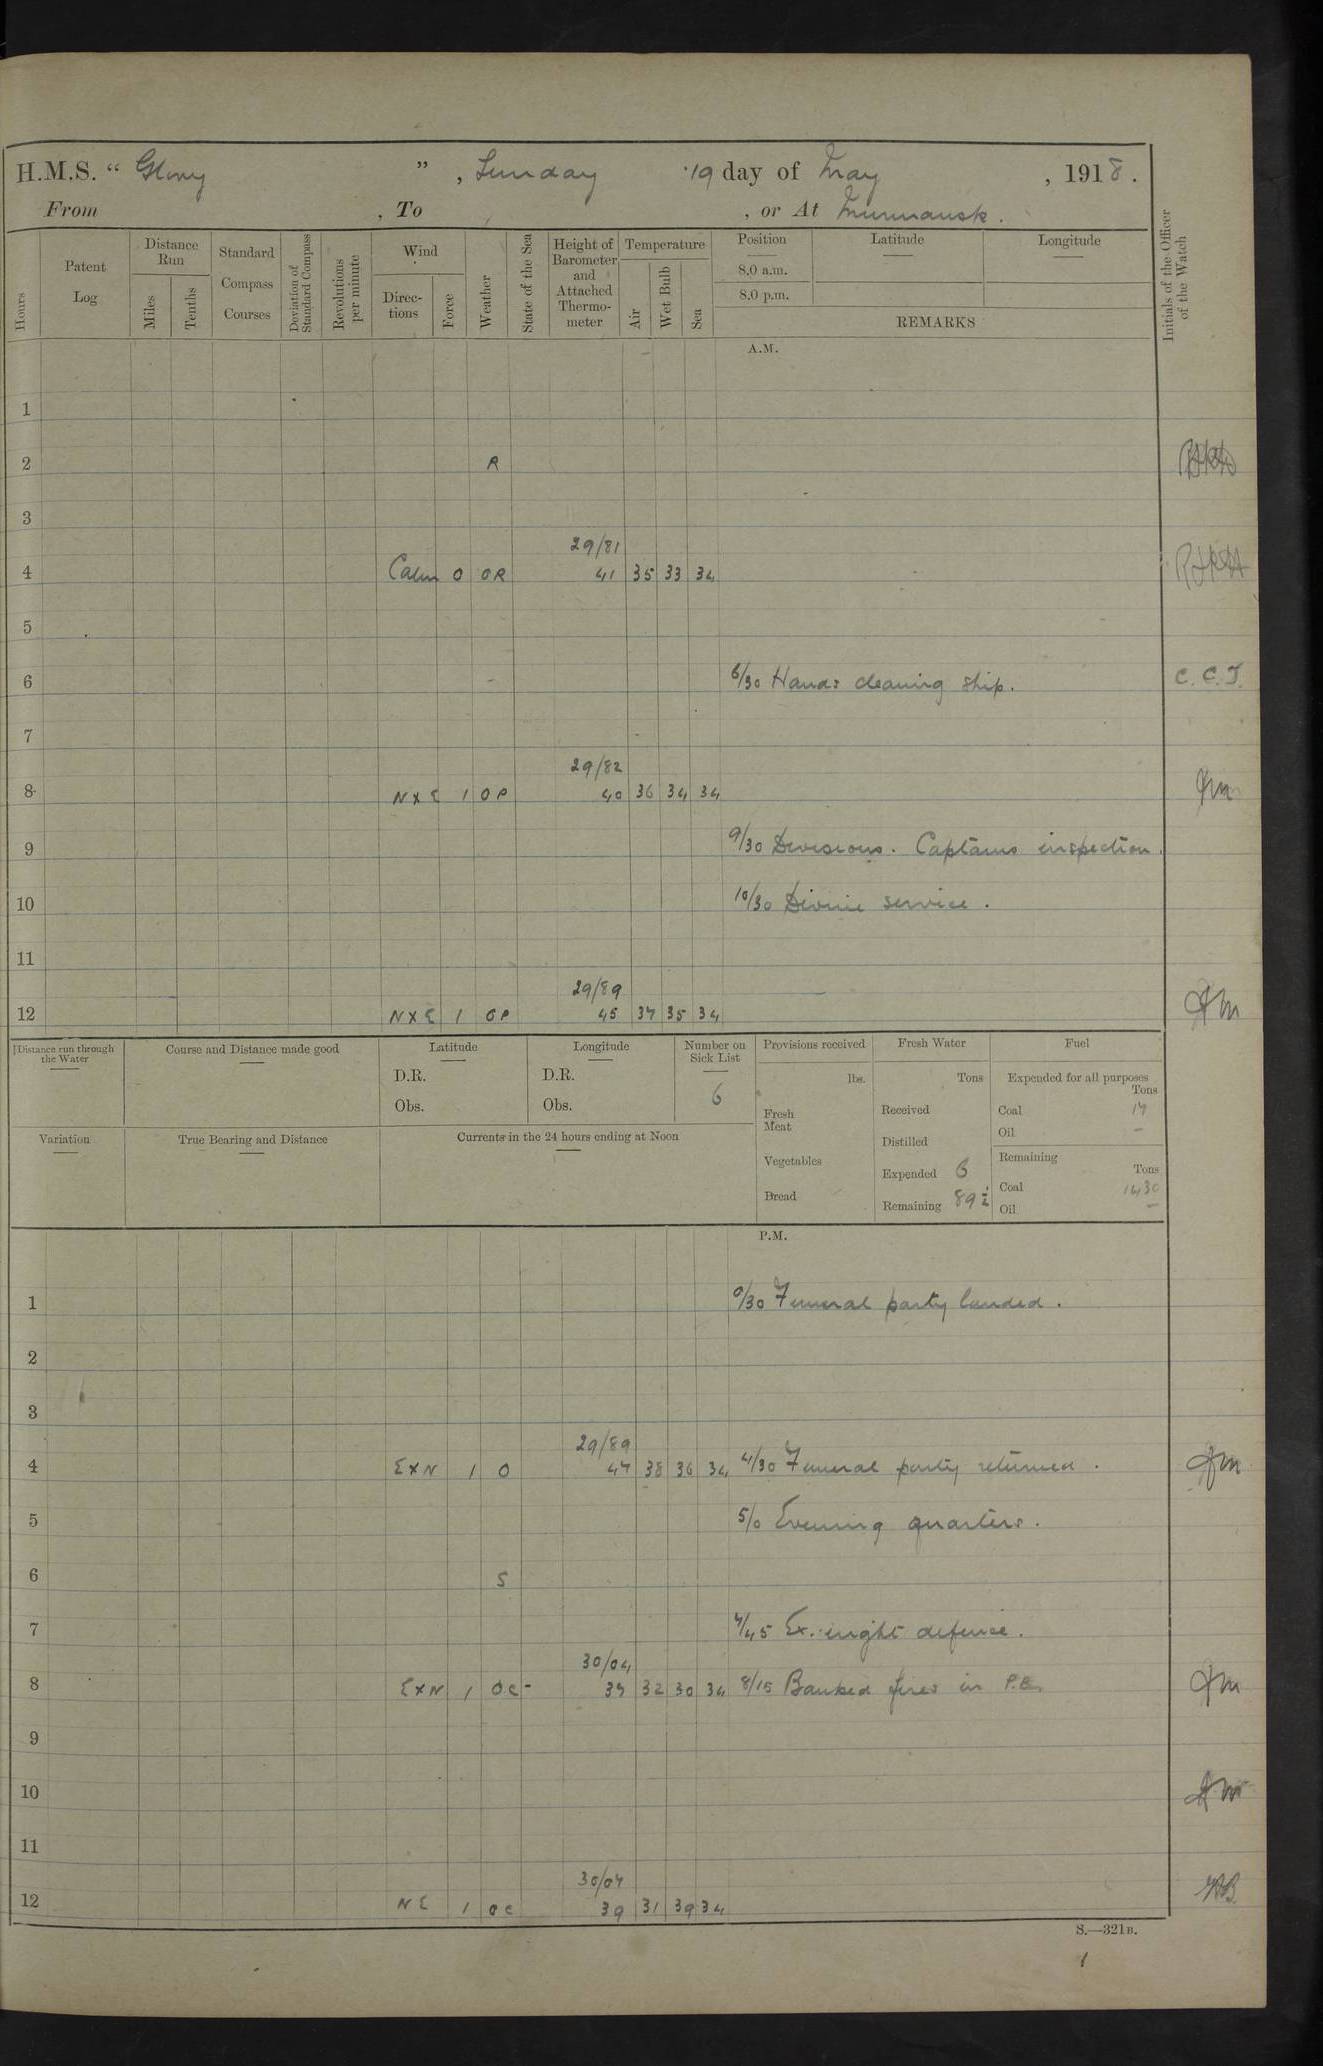 H.M.S. “ Glory ” , Sunday 19 day of May , 1918.
From , To , or At Murmansk.
Hours
Patent Log
Distance Run
Miles
Tenths
Standard Compass Courses
Deviation of Standard Compass
Revolutions per minute
Wind
Direc-tions
Force
Weather
State of the Sea
Height of Barometer and Attached Thermo-meter
Temperature
Air
Wet Bulb
Sea
Position
8.0 a.m.
8.0 p.m.
Latitude
Longitude
REMARKS
Initials of the Officer of the Watch
A.M.
1
2 R
3
29/81
4 Calm 0 OR 41 35 33 34
5
6 6/30 Hands cleaning ship. C.C.T.
7
29/82
8 N x E 1 OP 40 36 34 34
9 9/30 Divisions. Captains inspection.
10 10/30 Divine service.
11
29/89
12 N x E 1 OP 45 37 35 34
Distance run through the Water
Course and Distance made good
Latitude
D.R.
Obs.
Longitude
D.R.
Obs.
Number on Sick List
6
Provisions received
lbs.
Fresh Meat
Vegetables
Bread
Fresh Water
Tons
Received
Distilled
Expended 6
Remaining 89 ½
Fuel
Expended for all purposes
Tons
Coal 17
Oil –
Remaining
Tons
Coal 1430
Oil –
Variation
True Bearing and Distance
Currents in the 24 hours ending at Noon
P.M.
1 0/30 Funeral party landed.
2
3
29/89
4 E x N 1 O 47 38 36 34 4/30 Funeral party returned.
5 5/0 Evening quarters.
6 S
7 7/45 Ex. night defence.
30/04
8 E x N 1 OC- 37 32 30 34 8/15 Banked fires in P.B.
9
10
11
30/07
12 NE 1 OC 39 31 39 34
S.—321B.
1